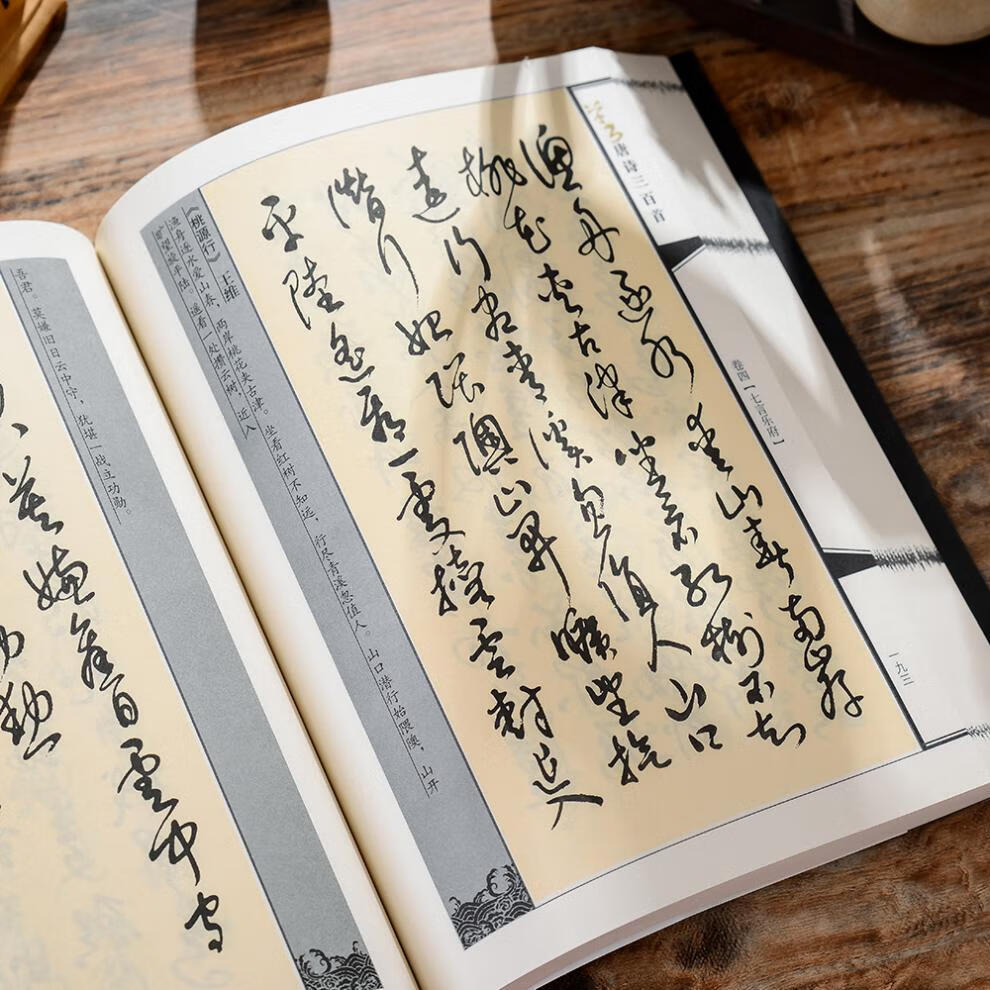 唐诗三百首
卷四【七言乐府】
一九三
渔舟逐水爱山春两岸
桃花夹古津坐看红树不知
远行尽青溪忽值人山口
潜行始隈隩山开旷望旋
平陆遥看一处攒云树近人
《桃源行》 王维
渔舟逐水爱山春，两岸桃花夹古津。坐看红树不知远，行尽青溪忽值人。山口潜行始隈隩，山开
旷望旋平陆。遥看一处攒云树，近人
吾君。莫嫌旧日云中守，犹堪一战立功勋。
莫嫌旧日云中守
功勋